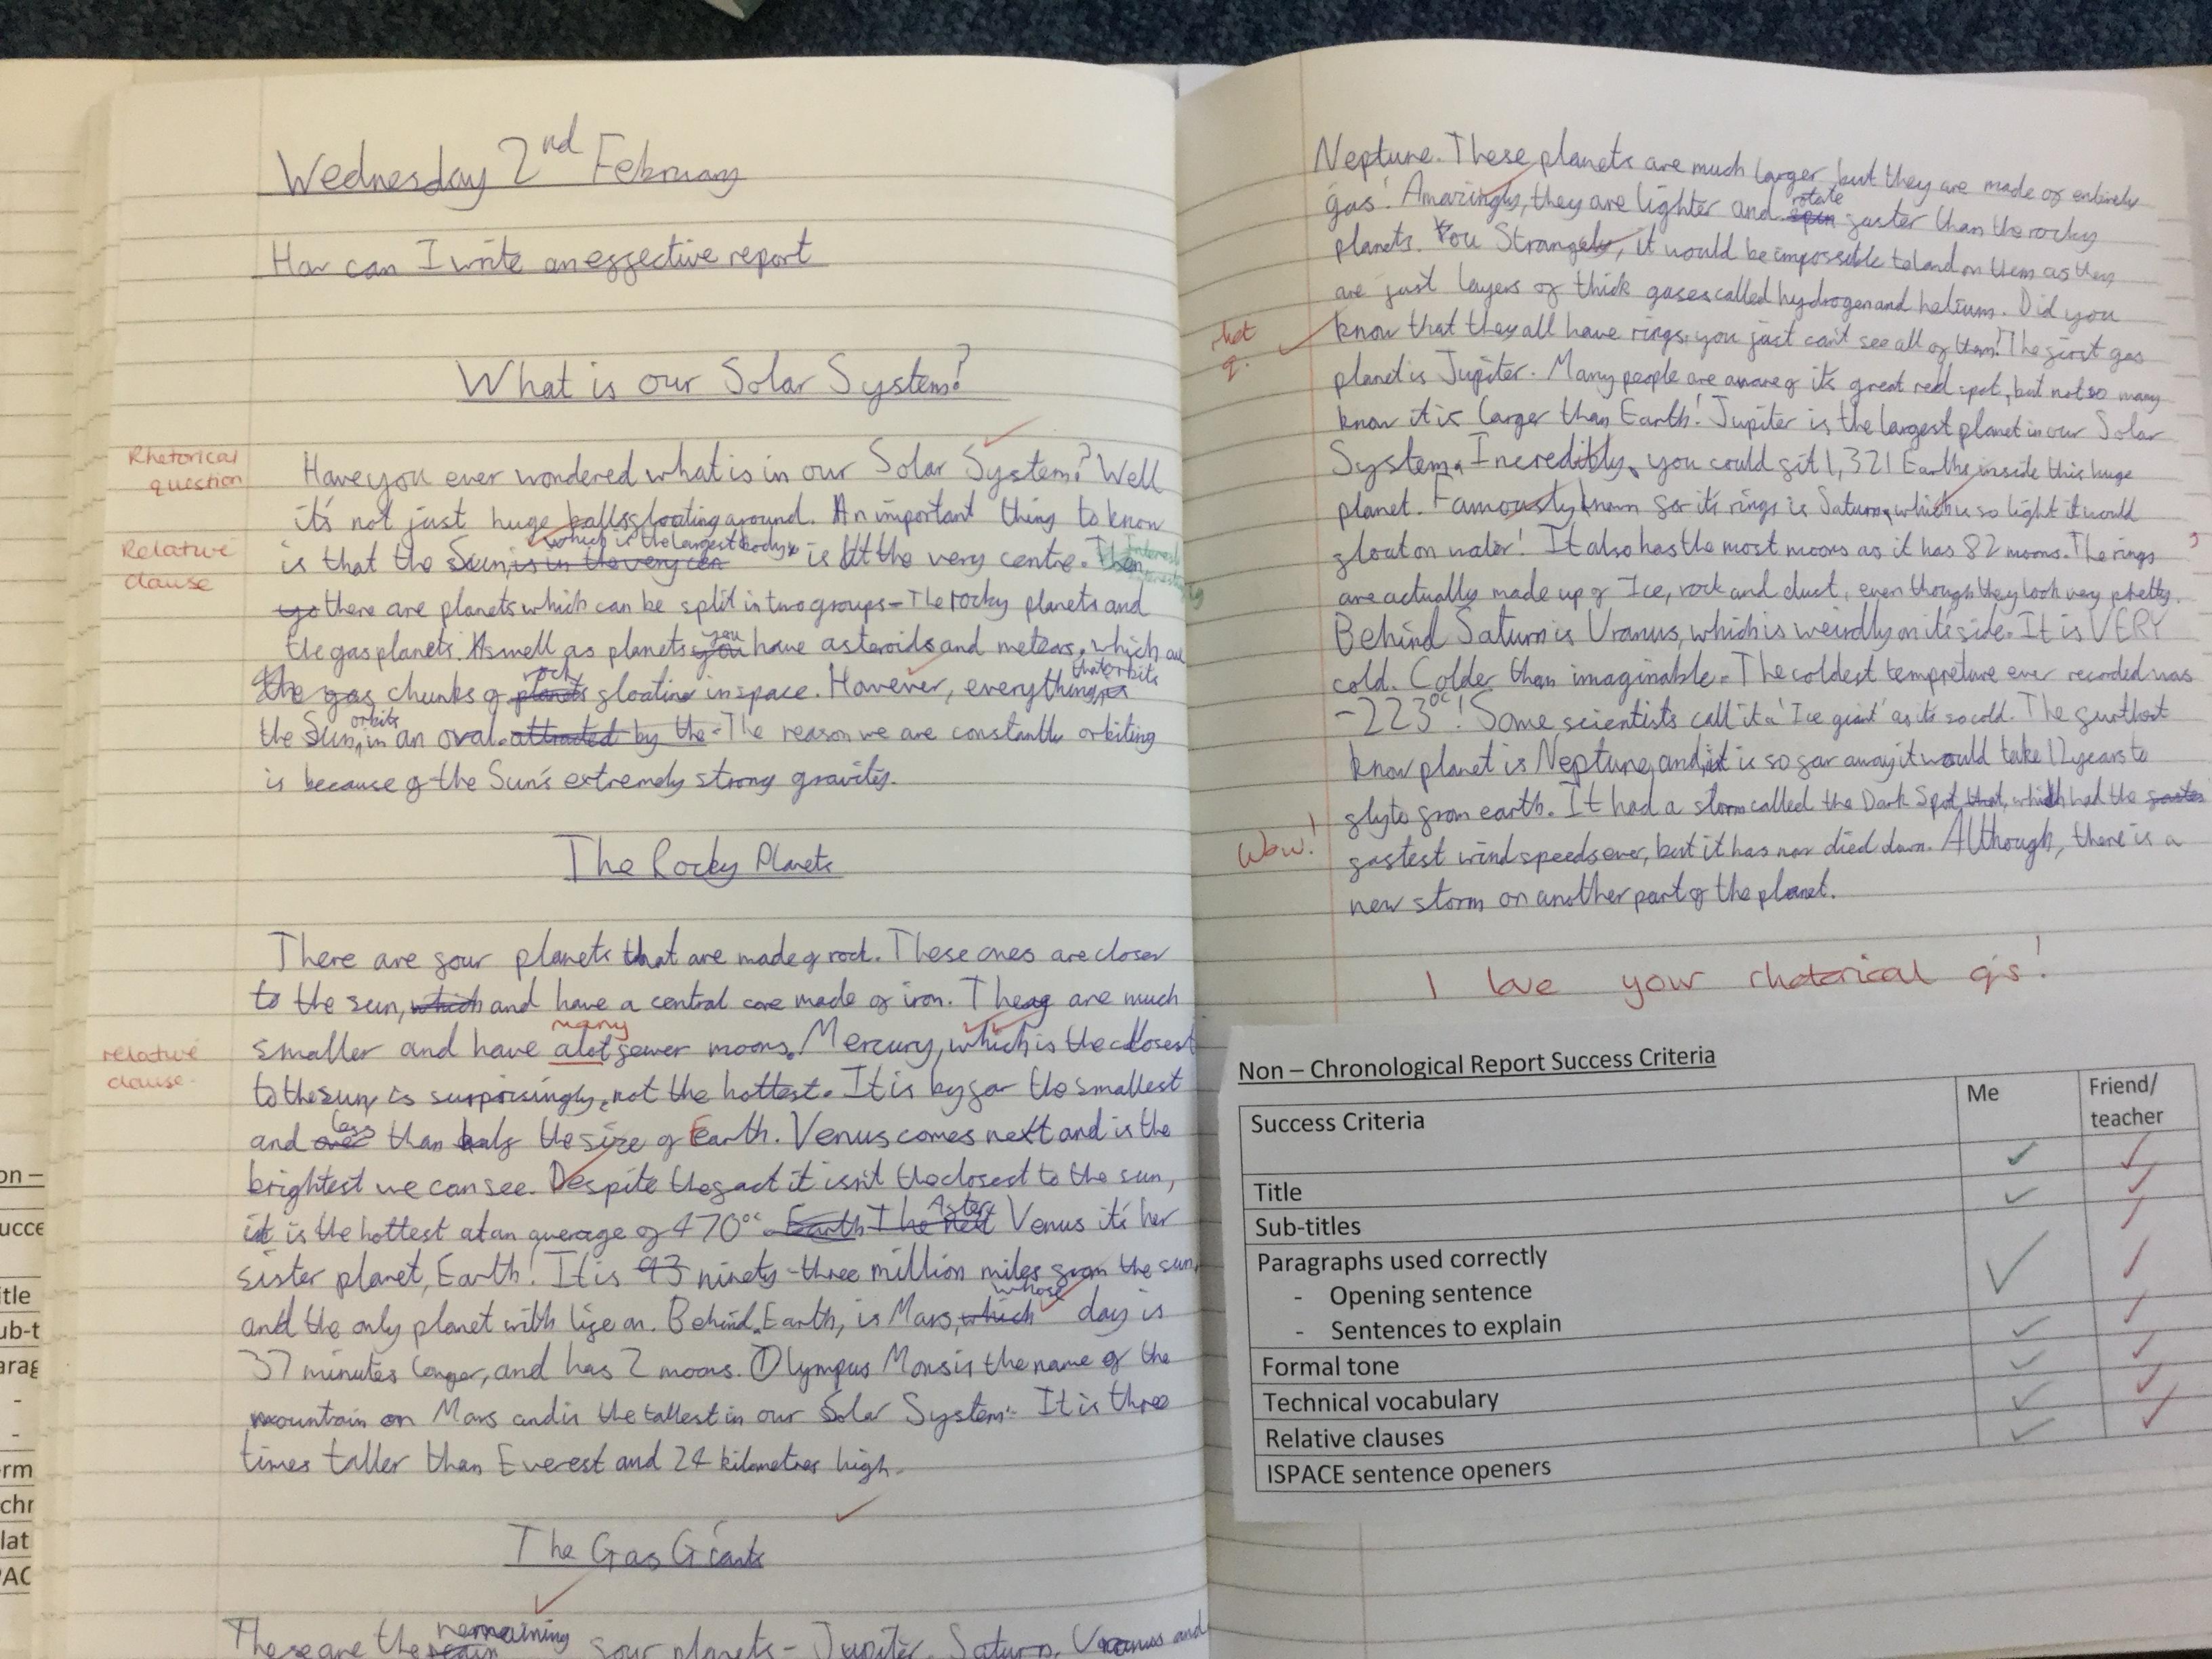 Wednesday 2nd February
How can I write an effective report
What is our Solar System?
Rhetorical
question
Have you ever wondered what is in our Solar System? Well
it's not just huge balls floating around. An important thing to know
which is the largest body,
Relative
clause
is that the Sun, is in the very cen is at the very centre. Then,
Interest
interesting
go there are planets which can be split in two groups - The rocky planets and
you
the gas planets. As well as planets you have asteroids and meteors, which are
rock
that orbits
the gas chunks of planets floating in space. However, everything
orbits
the Sun, in an oval. attracted by the - The reason we are constantly orbiting
is because of the Sun's extremely strong gravity.
The Rocky Planets
There are four planets that are made of rock. These ones are closer
to the sun, which and have a central core made of iron. They are much
many
smaller and have alot fewer moons. Mercury, which is the closest
relative
clause
to the sun, is surprisingly, not the hottest. It is by far the smallest
less
and over than half the size of Earth. Venus comes next and is the
brightest we can see. Despite the fact it isn't the closest to the sun,
After
it is the hottest at an average of 470°c. Earth The next Venus it's her
sister planet, Earth! It is 93 ninety-three million miles from the sun,
whose
and the only planet with life on. Behind Earth, is Mars, which day is
37 minutes longer, and has 2 moons. Olympus Mons is the name of the
mountain on Mars and is the tallest in our Solar System. It is three
times taller than Everest and 24 kilometres high.
The Gas Giants
remaining
These are the four planets - Jupiter, Saturn, Uranus and
Neptune. These planets are much larger but they are made of entirely
rotate
gas! Amazingly, they are lighter and spin faster than the rocky
planets. You Strangely, it would be impossible to land on them as they
are just layers of thick gases called hydrogen and helium. Did you
rhet
q.
know that they all have rings, you just can't see all of them! The first gas
planet is Jupiter. Many people are aware of it's great red spot, but not so many
know it is larger than Earth! Jupiter is the largest planet in our Solar
System. Incredibly, you could fit 1,321 Earths inside this huge
planet. Famously known for it's rings is Saturn, which is so light it would
float on water! It also has the most moons as it has 82 moons. The rings
are actually made up of Ice, rock and dust, even though they look very pretty.
Behind Saturn is Uranus, which is weirdly on it's side. It is VERY
cold. Colder than imaginable. The coldest tempreture ever recorded was
-223°c! Some scientists call it a 'Ice giant' as it's so cold. The furthest
know planet is Neptune, and it is so far away it would take 12 years to
fly to from earth. It had a storm called the Dark Spot, that, which had the fastes
Wow!
fastest wind speeds ever, but it has now died down. Although, there is a
new storm on another part of the planet.
I love your rhetorical q's!
Non – Chronological Report Success Criteria
Success Criteria
Me
Friend/
teacher
Title
Sub-titles
Paragraphs used correctly
- Opening sentence
- Sentences to explain
Formal tone
Technical vocabulary
Relative clauses
ISPACE sentence openers